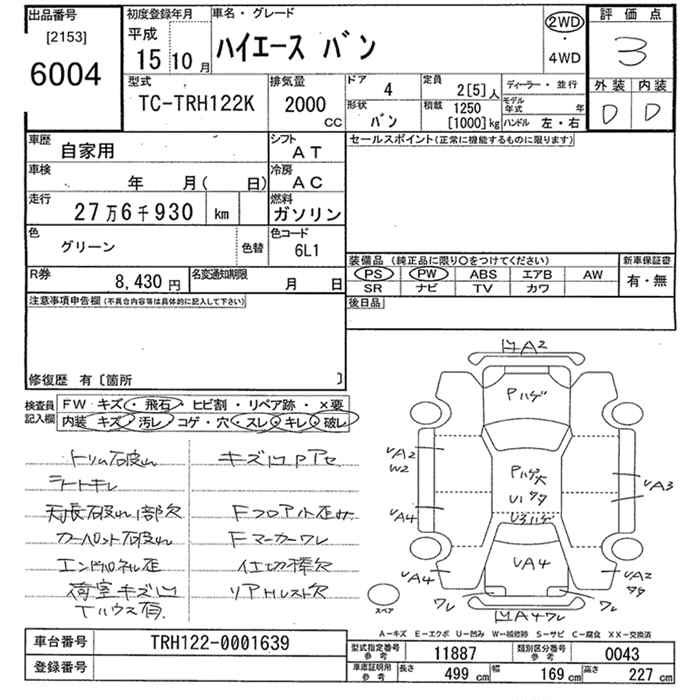 出品番号
[2153]
6004
初度登録年月
平成
15年10月
車名・グレード
ハイエース バン
2WD
・
4WD
評価点
3
外装 内装
D D
型式
TC-TRH122K
排気量
2000
CC
ドア 4
形状 バン
定員 2[5]人
積載 1250
[1000]kg
ディーラー・並行
モデル年式 年
ハンドル 左・右
車歴 自家用
シフト AT
車検 年 月( 日)
冷房 AC
走行 27万6千930 km
燃料 ガソリン
色 グリーン 色替
色コード 6L1
R券 8,430円
名変通知期限 月 日
セールスポイント(正常に機能するものに限ります)
装備品(純正品に限り○をつけてください)
PS PW ABS エアB AW
SR ナビ TV カワ
新車保証書
有・無
後日品
注意事項申告欄(不具合内容等は具体的に記入して下さい)
修復歴 有〔箇所 〕
検査員記入欄
FW キズ・飛石・ヒビ割・リペア跡・×要
内装 キズ・汚レ・コゲ・穴・スレ・キレ・破レ
トリム破れ
シートキレ
天張破れ1部欠
カーペット破れ
荷室キズ凹
キズ凹Pアセ
Fマーカーワレ
仕切棒欠
凹A2
Pハゲ
UA2
W2
UA4
UA4
Pハゲ大
UA3
UA4
UA2
ワレ
ワレ
凹A4ワレ
スペア
A-キズ E-エクボ U-凹み W-補修跡 S-サビ C-腐食 XX-交換済
車台番号 TRH122-0001639
登録番号
型式指定番号
参考
11887
類別区分番号
参考
0043
車庫証明用
参考
長さ 499 cm 幅 169 cm 高さ 227 cm